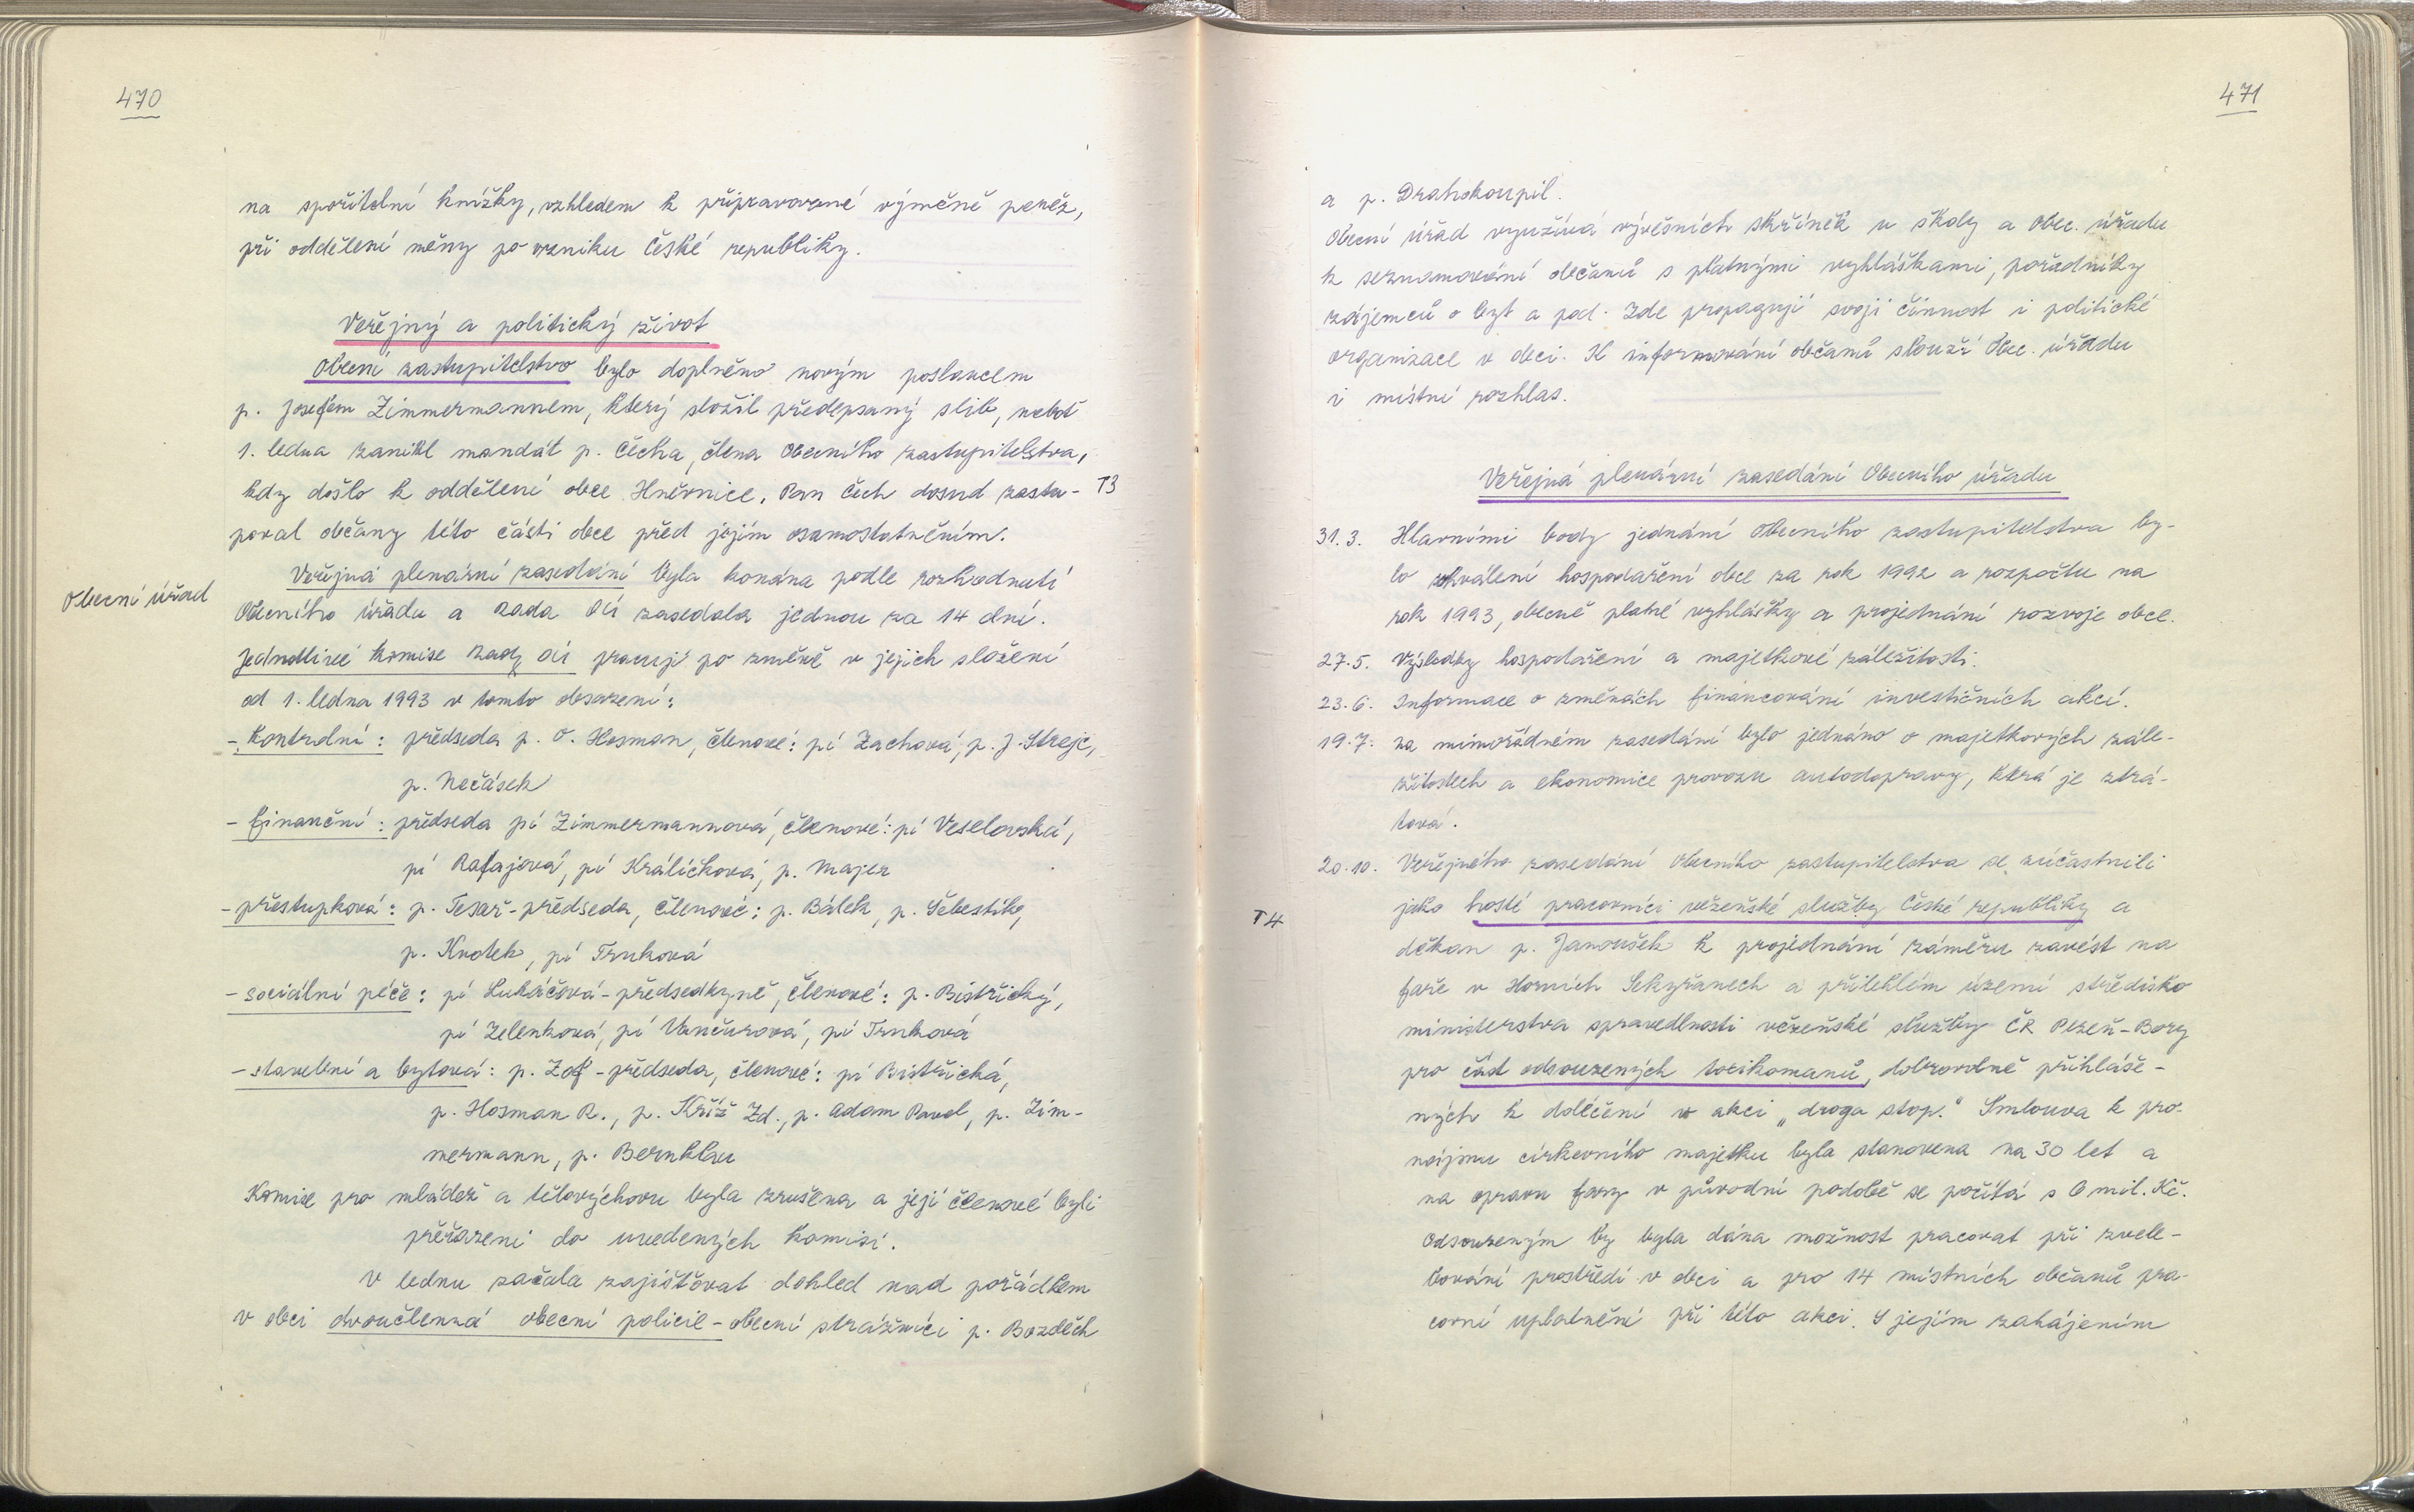 470
na spořitelní knížky, vzhledem k připravované výměně peněz,
při oddělení měny po vzniku České republiky.
Veřejný a politický život
Obecní zastupitelstvo bylo doplněno novým poslancem
p. Josefem Zimmermannem, který složil předepsaný slib, neboť
1. ledna zanikl mandát p. Čecha, člena Obecního zastupitelstva,
kdy došlo k oddělení obce Hněvnice. Pan Čech dosud zastu- T3
poval občany této části obce před jejím osamostatněním.
Veřejná plenární zasedání byla konána podle rozhodnutí
Obecní úřad
Obecního úřadu a Rada OÚ zasedala jednou za 14 dní.
Jednotlivé komise Rady OÚ pracují po změně v jejich složení
od 1. ledna 1993 v tomto obsazení:
- Kontrolní: předseda p. O. Hosman, členové: pí Zachová, p. J. Strejc,
p. Nečásek
- finanční: předseda pí Zimmermannová, členové: pí Veselovská,
pí Rafajová, pí Králíčková, p. Majer
- přestupková: p. Tesař - předseda, členové: p. Bálek, p. Šebestík,
p. Kvotek, pí Trnková
- sociální péče: pí Lukáčová - předsedkyně, členové: p. Bistřický,
pí Zelenková, pí Vančurová, pí Trnková
- stavební a bytová: p. Zof - předseda, členové: pí Bistřická,
p. Hosman R., p. Kříž Zd., p. Adam Pavel, p. Zim-
mermann, p. Bernklau
Komise pro mládež a tělovýchovu byla zrušena a její členové byli
přeřazeni do uvedených komisí.
V lednu začala zajišťovat dohled nad pořádkem
v obci dvoučlenná obecní policie - obecní strážníci p. Bozděch
471
a p. Drahokoupil.
Obecní úřad využívá vývěsních skříněk u školy a Obec. úřadu
k seznamování občanů s platnými vyhláškami, pořadníky
zájemců o byt a pod. Zde propagují svoji činnost i politické
organizace v obci. K informování občanů slouží Obec. úřadu
i místní rozhlas.
Veřejná plenární zasedání Obecního úřadu
31. 3. Hlavními body jednání Obecního zastupitelstva by-
lo schválení hospodaření obce za rok 1992 a rozpočtu na
rok 1993, obecně platné vyhlášky a projednání rozvoje obce.
27. 5. Výsledky hospodaření a majetkové záležitosti.
23. 6. Informace o změnách financování investičních akcí.
19. 7. na mimořádném zasedání bylo jednáno o majetkových zále-
žitostech a ekonomice provozu autodopravy, která je ztrá-
tová.
20. 10. Veřejného zasedání Obecního zastupitelstva se zúčastnili
T4 jako hosté pracovníci vězeňské služby České republiky a
děkan p. Janoušek k projednání záměru zavést na
faře v Horních Sekyřanech a přilehlém území středisko
ministerstva spravedlnosti vězeňské služby ČR Plzeň-Bory
pro část odsouzených toxikomanů, dobrovolně přihláše-
ných k doléčení v akci „droga stop." Smlouva k pro-
nájmu církevního majetku byla stanovena na 30 let a
na opravu fary v původní podobě se počítá s 6 mil. Kč.
Odsouzeným by byla dána možnost pracovat při zvele-
bování prostředí v obci a pro 14 místních občanů pra-
covní uplatnění při této akci. S jejím zahájením